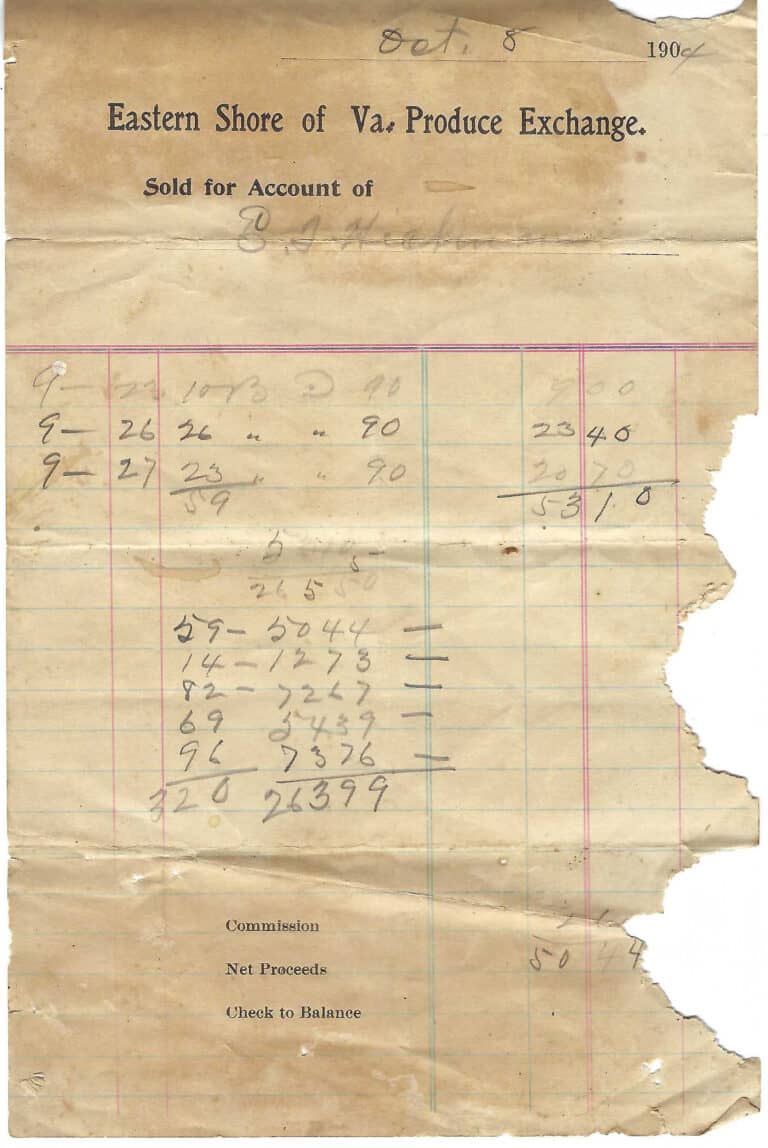 Oct. 8 1904
Eastern Shore of Va. Produce Exchange.
Sold for Account of
E. T
9— 10 B 90 9 00
9— 26 26 " " 90 23 40
9— 27 23 " " 90 20 70
59 53 10
5
26 5 50
59— 5044 —
14— 1273 —
82— 7267 —
69 5439 —
96 7376 —
320 26399
Commission
Net Proceeds 50 44
Check to Balance